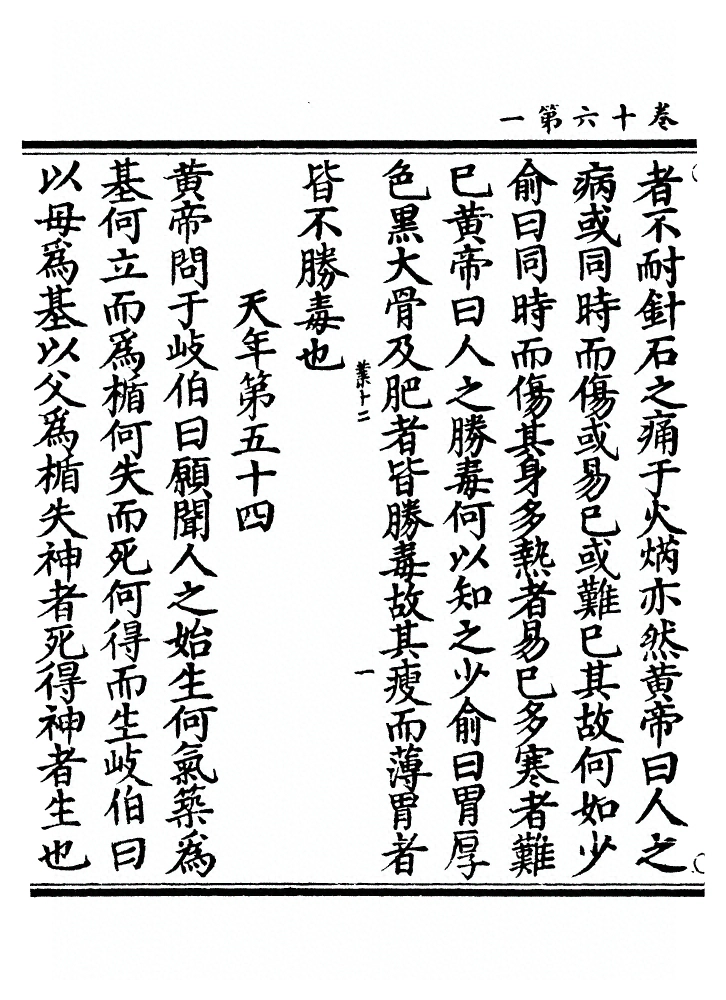 卷十六第一
者不耐針石之痛于火焫亦然黄帝曰人之
病或同時而傷或易已或難已其故何如少
俞曰同時而傷其身多熱者易已多寒者難
已黄帝曰人之勝毒何以知之少俞曰胃厚
色黑大骨及肥者皆勝毒故其瘦而薄胃者
葉十二
一
皆不勝毒也
天年第五十四
黄帝問于岐伯曰願聞人之始生何氣築爲
基何立而爲楯何失而死何得而生岐伯曰
以母爲基以父爲楯失神者死得神者生也